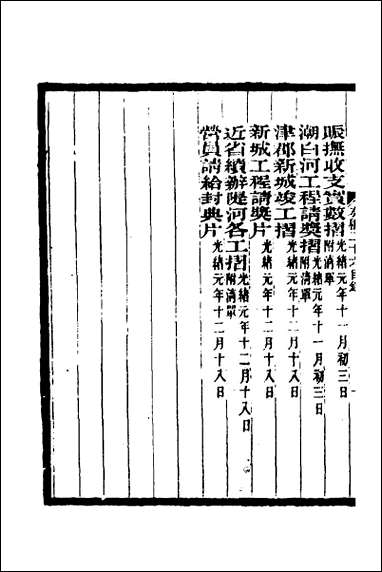 賑撫收支實數摺附清單 光緒元年十一月初三日
潮白河工程請獎摺附清單 光緒元年十一月初三日
津郡新城竣工摺 光緒元年十二月十八日
新城工程請獎片 光緒元年十二月十八日
近省續辦隄河各工摺附清單 光緒元年十二月十八日
營員請給封典片 光緒元年十二月十八日